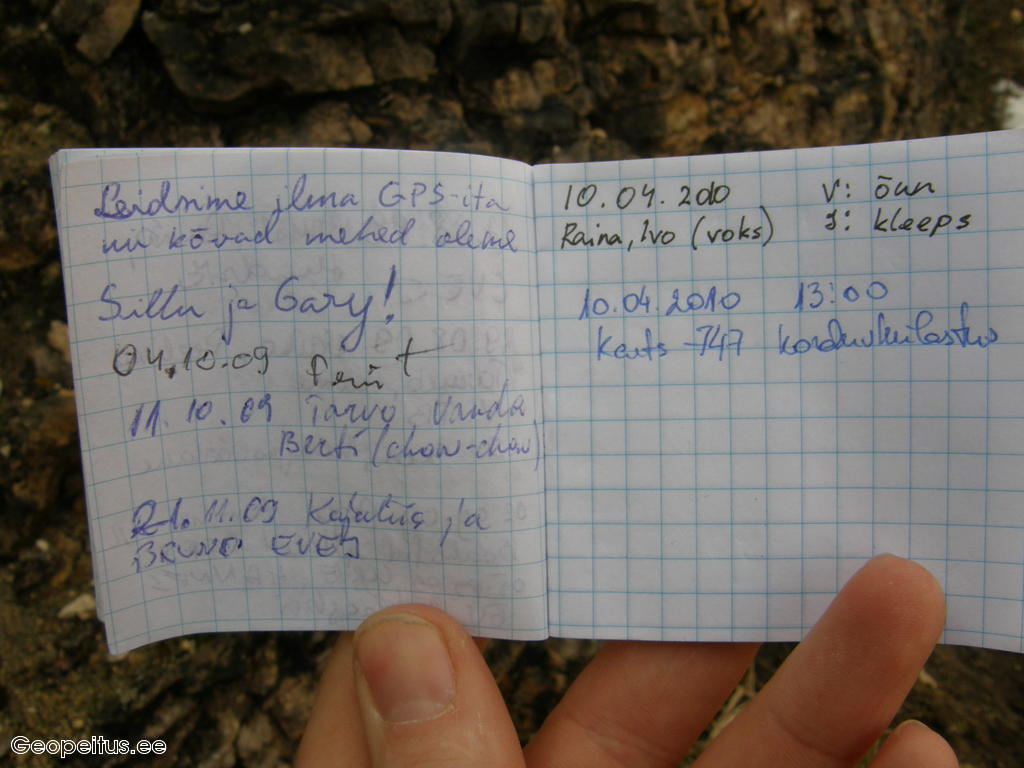 Leidsime ilma GPS-ita
nii kõvad mehed oleme
Sillu ja Gary!
04.10.09 Perit
11.10.09 Tarvo, Vanda
Berti (chow-chow)
21.11.09 Kajakas ja
BRUNO
10.04.2010
Raina, Ivo (voks)
V: õun
J: kleeps
10.04.2010 13:00
Kents -747 korduvkülastus
Geopeitus.ee